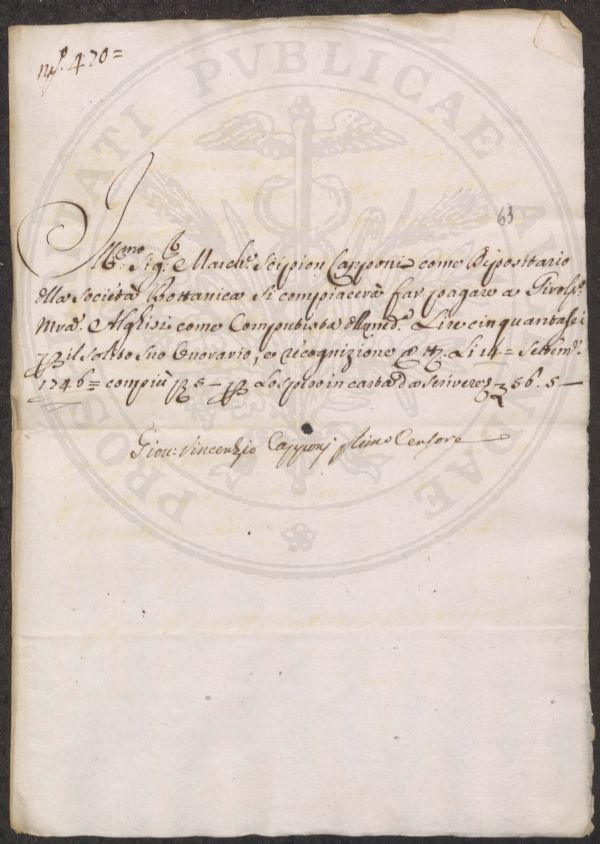 N.º 470=
63
Ill.mo Sig.r March.e Scipion Capponi come Dipositario
della Società Bottanica Si compiacerà far pagare a Girol.º
Alghisi come Computista Lire cinquantasei
p il solito Suo Onorario, e recognizione a tt.º Li 14= Settem.e
1746= compiù p lo speso in carta da scrivere 56. 5 —
Giov: Vincenzio Capponj Primo Censore
PROSPERITATI PVBLICAE AVGENDAE